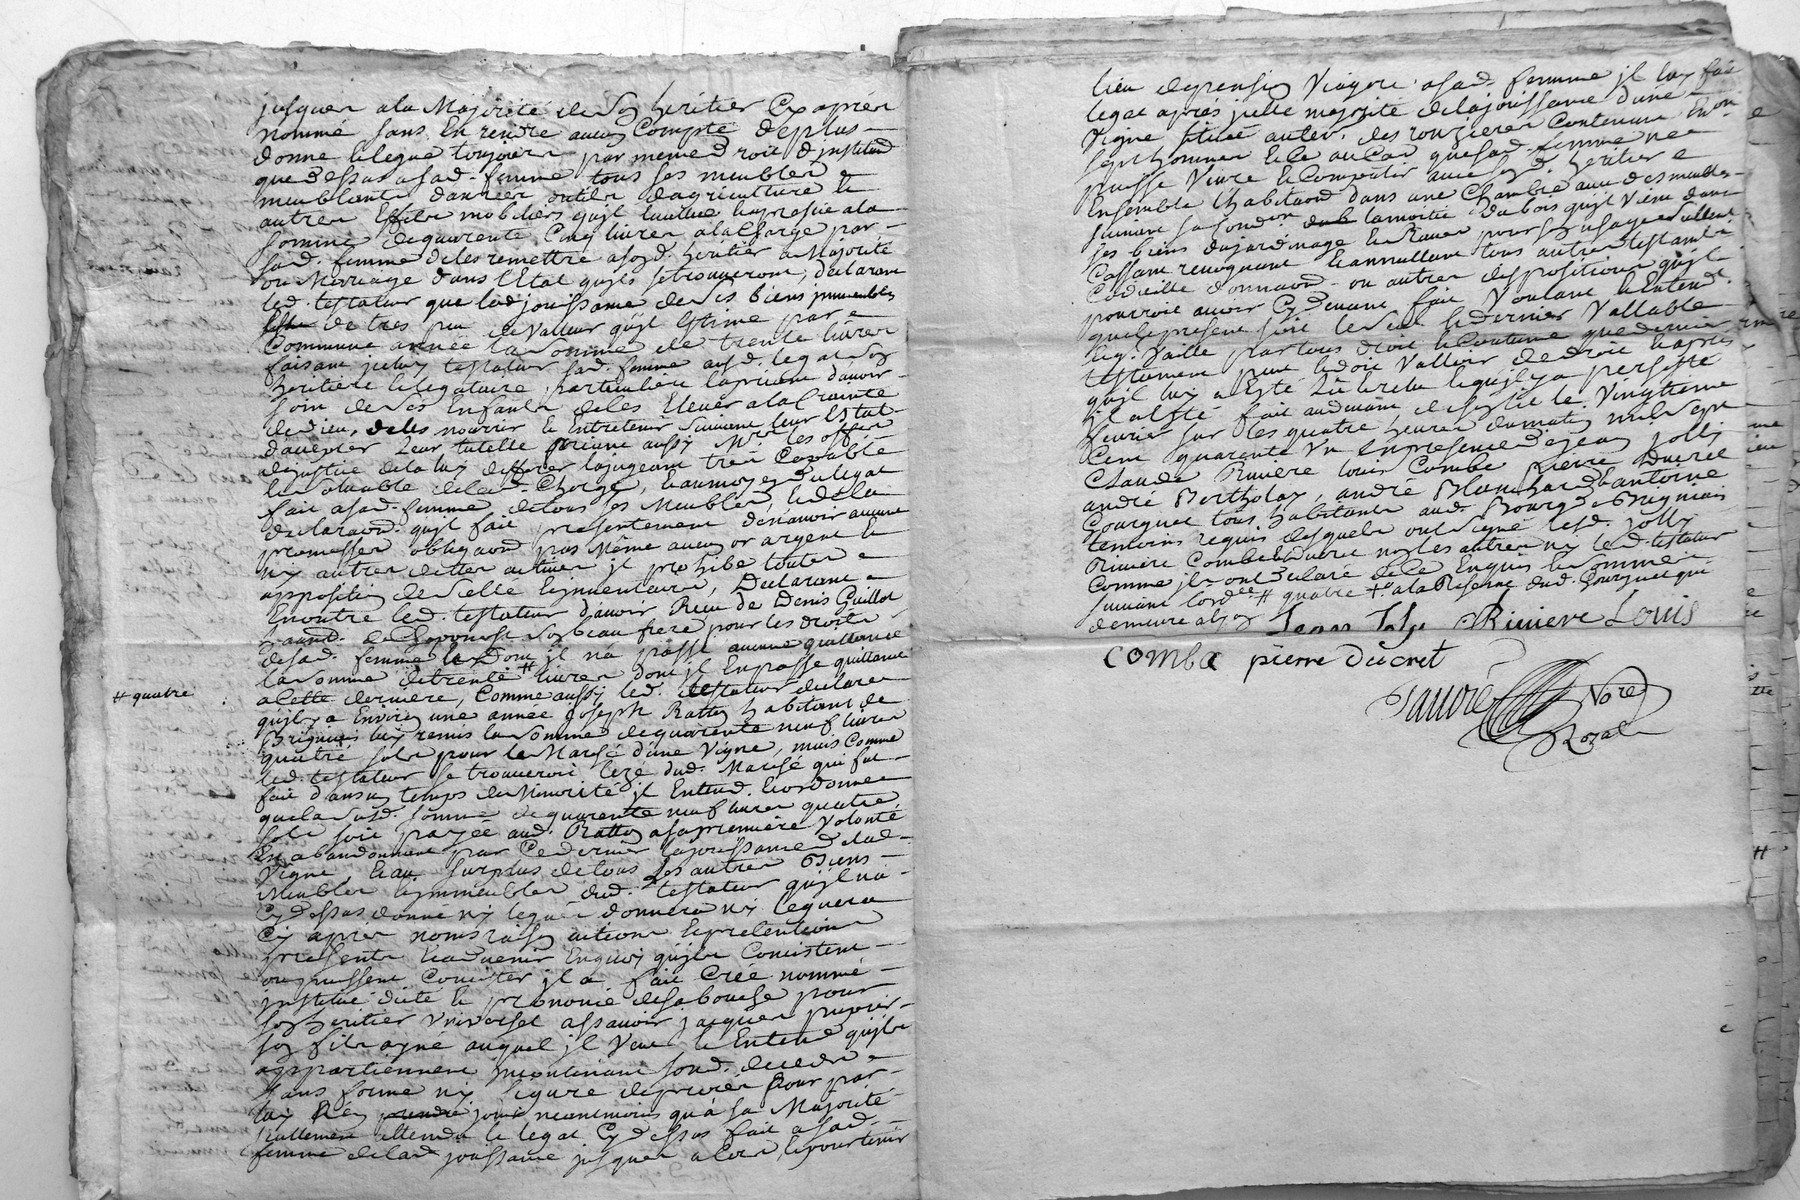 jusques a la Majorité de Son heritier Cy apprès
nommé sans En rendre aucun Compte de plus
donne & legue toujours par meme droit d'institu͠on
que Dessus a sad. femme tous ses meubles &
meublants danrées outils d'agriculture &
autres Effets mobiliers qu'il Evalue a la
somme de quarente Cinq livres a la Charge par
sad. femme de les remettre a son d. heritier a Majorité
ou Marriage dans l'Etat qu'ils se trouveront, declarant
led. testateur que lad jouissance de Ses biens jmmeubles
de tres peu de Valleur qu'il Estime par
Commune année la Somme de trente livres
faisant jcelluy testateur sad. femme aud. legat Son
heritiere & legataire particuliere la priant d'avoir
soin de Ses Enfants de les Elever a la Crainte
de dieu, de les nourrir & Entretenir Suivant leur Etat
d'accepter Leur tutelle priant aussy Mrs les offers
de justice de la luy differer la jugeant très Capable
& Solvable de lad. Charge, & au moyen du legat
fait a sad. femme de tous ses Meubles, & de la
declaraon qu'il fait presentement de n'avoir aucune
promesses obligaons pas Même aucun or argent &
ny autres dettes actives jl prohibe toutes
apposition de Sellé & jnventaires, Declarant
Enoutre led. testateur d'avoir Receu de Denis Guillot
de Chaponost Son beau frere pour les droits
de sad. femme & Dont jl n'a passé aucune quittance
la Somme de trente # livres dont jl En passe quittance
# quatre
a Cette derniere, Comme aussy led. testateur declare
qu'il y a Environ une année Joseph Ratton habitant de
Brignais luy remis la Somme de quarente neuf livres
quatre sols pour le Marché d'une Vigne, mais Comme
led. testateur se trouveroit lezé dud. Marché qui fut
fait dans un temps de Minorité jl Entend & ordonne
que la Susd. somme de quarente neuf livres quatre
sols soit payée aud. Ratton a sa première Volonté
En abandonnant par Ce dernier la jouissance de lad.
Vigne & au Surplus de tous Les autres Biens
Meubles & jmmeubles dud. testateur qu'il n'a
Cy dessus donné ny legué donnera ny leguera
Cy aprés noms raison actions & pretentions
presents & advenir En quoy qu'ils Consistent
ou puissent Consister jl a fait Créé nommé
jnstitué dicté & prononcé de sa bouche pour
son heritier Vniversel assavoir jacques
son fils ayné auquel jl Veut & Entend qu'ils
appartiennent jncontinant son d. decedz
sans forme ny figure de procés Pour par
luy N'en jouir neantmoins qu'à sa Majorité
seullement attendu le legat Cy dessus fait a sad.
femme de lad jouissance jusques alors, & pour tenir
lieu de pension Viagere a sad. femme jl luy fait
legat aprés jcelle majorité de la jouissance d'une
Vigne située au terr. des ronzieres Contenant Environ
sept hommes & Ce au Cas que sad. femme ne
puisse Vivre & Compatir avec son d. heritier &
Ensemble l'habitaon dans une Chambre avec des meubles
suivant sa Condon la moitié du bois qu'il Vient dans
ses biens du jardinage & Raves pour son usage
Cassant revoquant & annullant tous autres testaments
Codicille donnaon ou autres dispositions qu'il
pourroit avoir Cy devant fait Voulant & Entend.
que le present soit le Seul & dernier Vallable
& q. Vaille par tous droit & Coutume que dernier
testament peut & doit Valloir de droit & aprés
qu'il luy a Esté Lû & relu & qu'il y a persisté
jl a Esté fait audit de domicile le Vingtieme
fevrier sur les quatre heures du matin mil Sept
Cent quarente Vn En presence de jean jolly
Claude Riviere Louis Combe Pierre Ducret
andré Bertholay, andré Blanchard & antoine
Gourguet tous habitants aud. Bourg de Brignais
temoins requis desquels ont signé lesd. jolly
Riviere Combe & Ducret non les autres ny led. testateur
Comme jls ont declaré de Ce Enquis & Sommés
suivant l'ordce # quatre + a la Reserve dud. Gourguet qui
demeure a
Jean Joly Riviere Louis
comba pierre ducret
Nore
Rozal